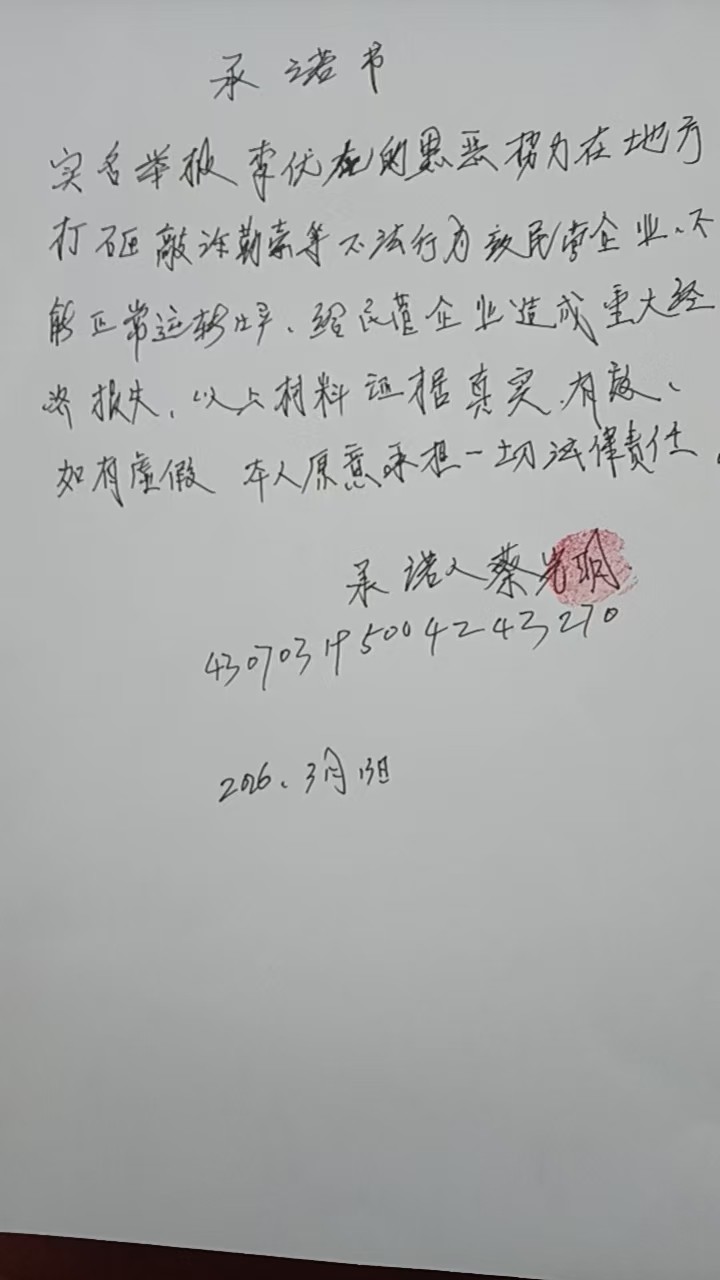 承诺书
实名举报李优在的黑恶势力在地方
打砸敲诈勒索等不法行为致民营企业、不
能正常运转生产、给民营企业造成重大经
济损失、以上材料证据真实、有效、
如有虚假 本人原意承担一切法律责任.
承诺人蔡光明
430703195004243270
2026.3月13日